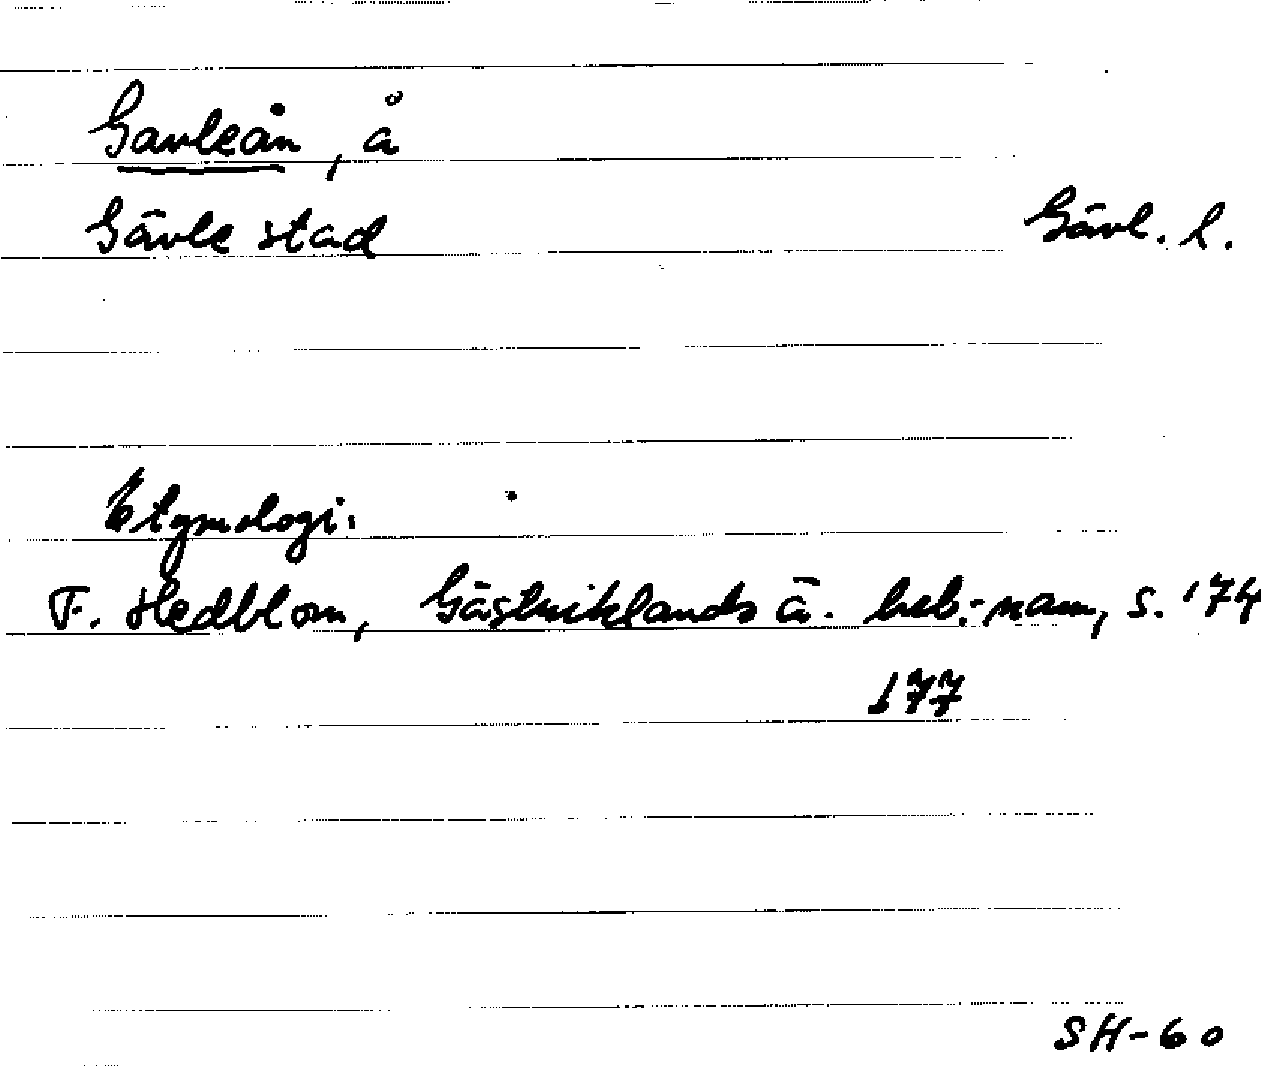 Gavleån, å
Gävle stad Gävl. l.
Etymologi.
F. Hedblom, Gästriklands ä. beb.-namn, s. 174
177
SH-60